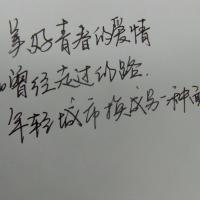 美好青春的爱情
如曾经走过的路.
年轻城市换成另一种